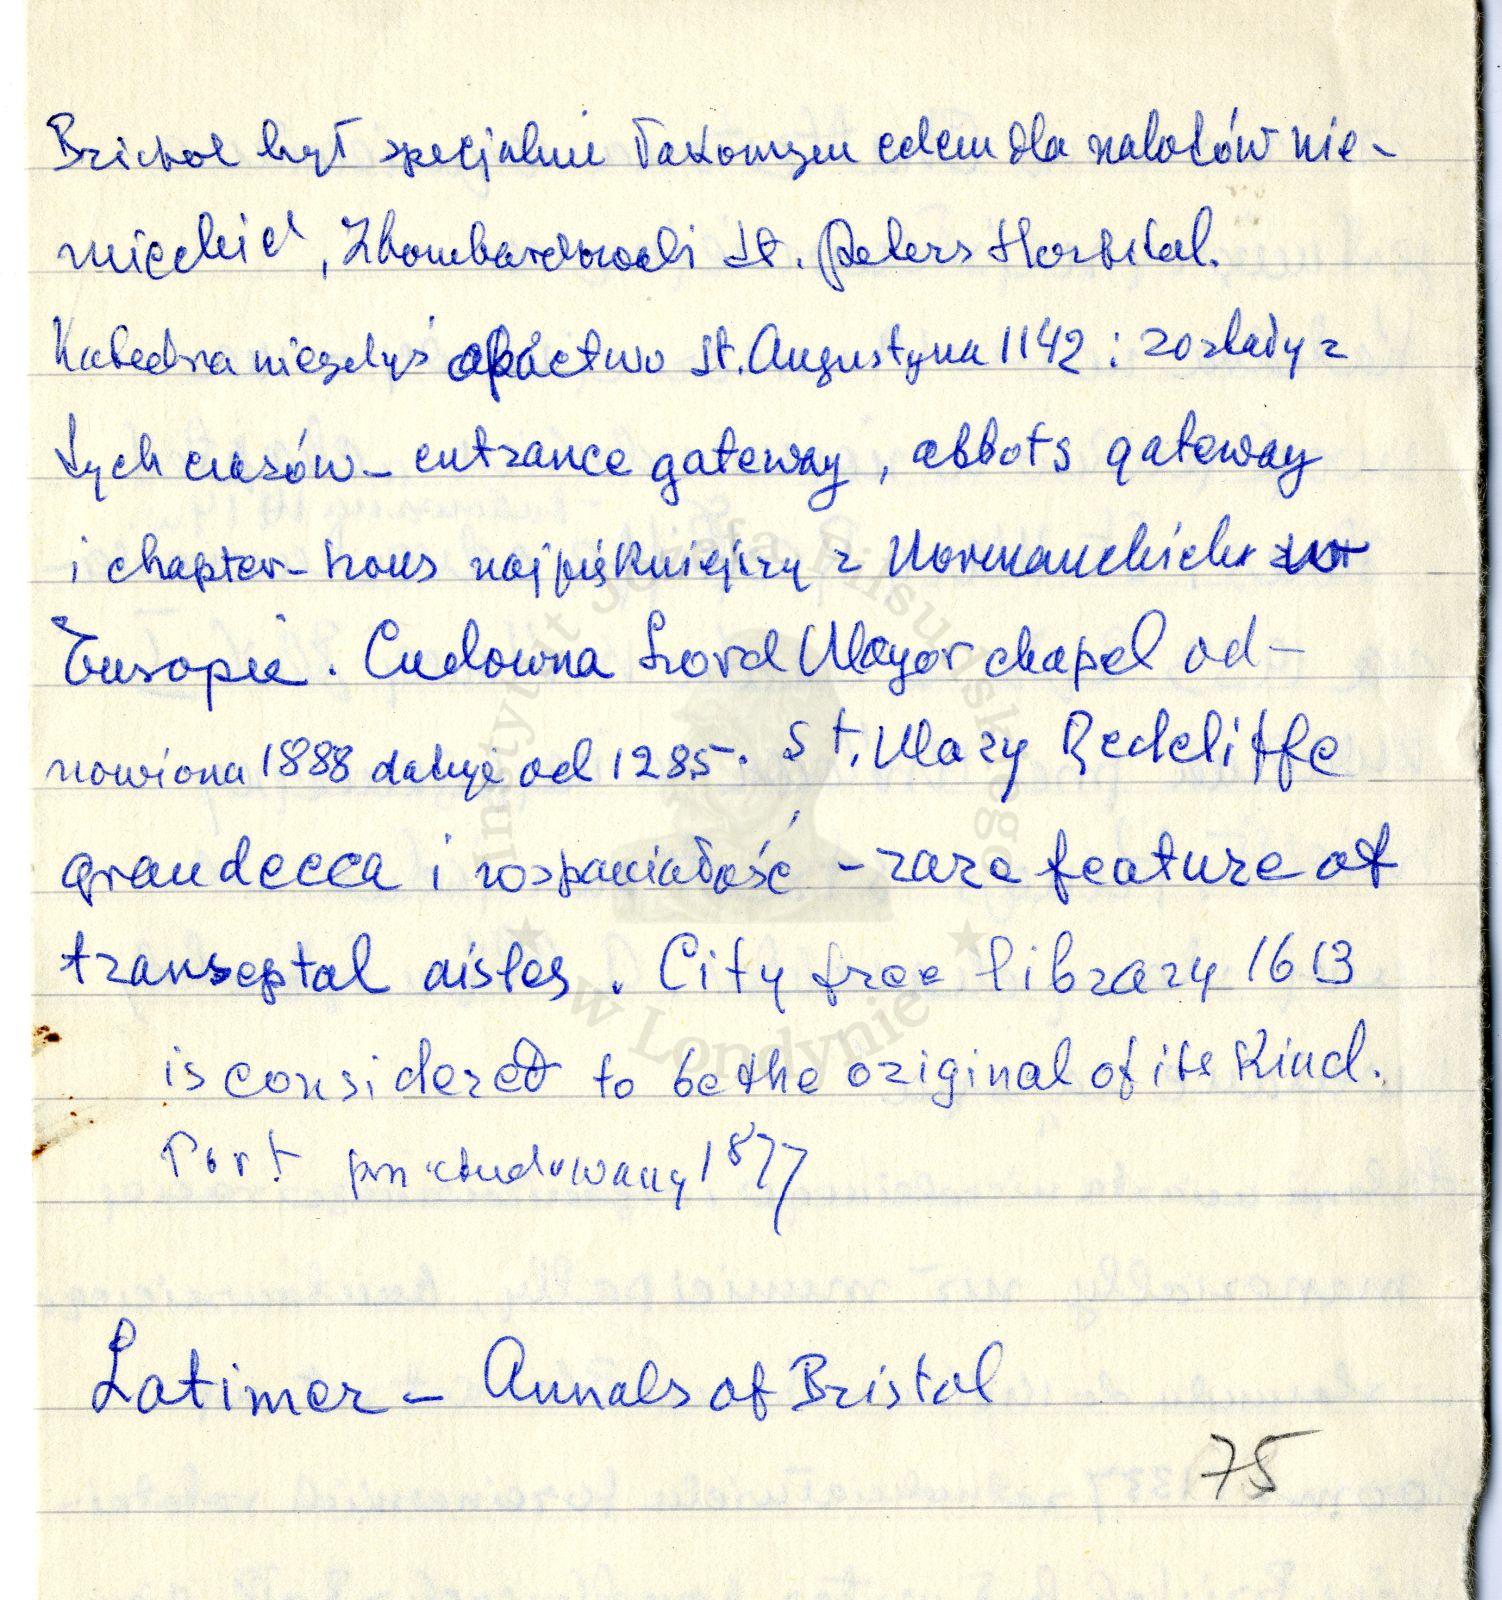 Bristol był specjalnie łakomym celem dla nalotów nie-
mieckich, Zbombardowali St. Peters Hospital.
Katedra niegdyś opactwo St. Augustyna 1142 i zostały z
tych czasów - entrance gateway, abbots gateway
i chapter-hous najpiękniejszy z Normandzkich w
Europie. Cudowna Lord Mayor chapel od-
nowiona 1888 datuje od 1285. St. Mary Redcliffe
grandecca i wspaniałość - rare feature of
transeptal aisles. City free library 1613
is considered to be the original of its kind.
Port przebudowany 1877
Latimer - Annals of Bristol
75
Instytut Józefa Piłsudskiego
w Londynie